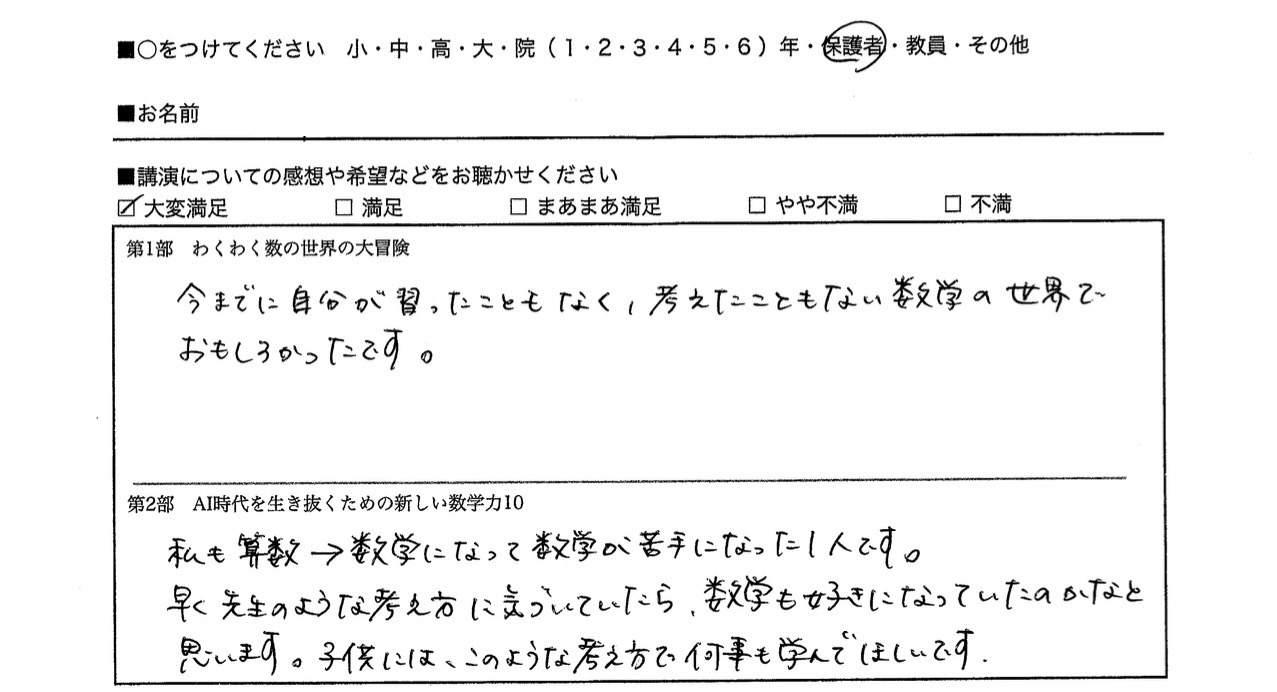 ■○をつけてください 小・中・高・大・院(1・2・3・4・5・6)年・保護者・教員・その他
■お名前
■講演についての感想や希望などをお聴かせください
☑大変満足 □満足 □まあまあ満足 □やや不満 □不満
第1部 わくわく数の世界の大冒険
今までに自分が習ったこともなく、考えたこともない数学の世界で
おもしろかったです。
第2部 AI時代を生き抜くための新しい数学力10
私も算数→数学になって数学が苦手になった1人です。
早く先生のような考え方に気づいていたら、数学も好きになっていたのかなと
思います。子供には、このような考え方で何事も学んでほしいです.